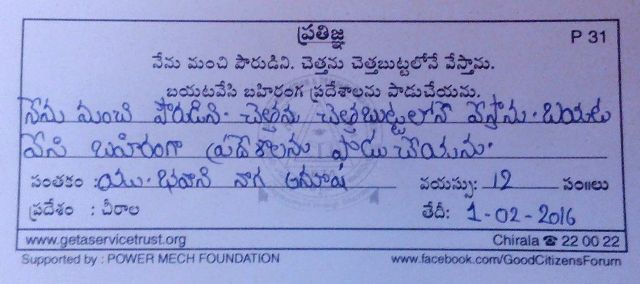 ప్రతిజ్ఞ P 31
నేను మంచి పౌరుడిని. చెత్తను చెత్తబుట్టలోనే వేస్తాను.
బయటవేసి బహిరంగ ప్రదేశాలను పాడుచేయను.
నేను మంచి పౌరుడిని. చెత్తను చెత్తబుట్టలోనే వేస్తాను. బయట
వేసి బహిరంగా ప్రదేశాలను పాడు చేయును.
సంతకం : యు. భవాని నాగ అనూష వయస్సు: 12 సం॥లు
ప్రదేశం : చీరాల తేదీ: 1-02-2016
www.getaservicetrust.org Chirala ☎ 22 00 22
Supported by : POWER MECH FOUNDATION www.facebook.com/GoodCitizensForum